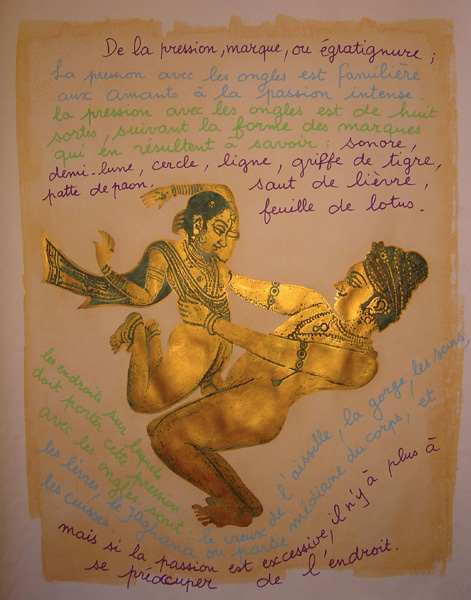 De la pression, marque, ou égratignure ;
La pression avec les ongles est familière
aux amants à la passion intense
la pression avec les ongles est de huit
sortes, suivant la forme des marques
qui en résultent à savoir : sonore,
demi-lune, cercle, ligne, griffe de tigre,
patte de paon, saut de lièvre,
feuille de lotus.
les endroits sur lesquels
doit porter cette pression
avec les ongles sont :
le creux de l'aisselle, la gorge, les seins,
les lèvres, le jaghana ou partie médiane du corps, et
les cuisses.
mais si la passion est excessive, il n'y à plus à
se préoccuper de l'endroit.